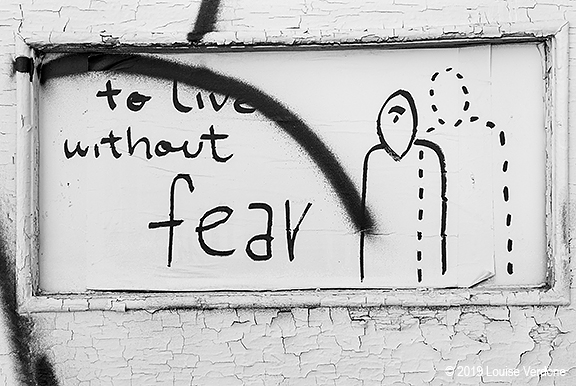 to live
without
fear
© 2019 Louise Verdone